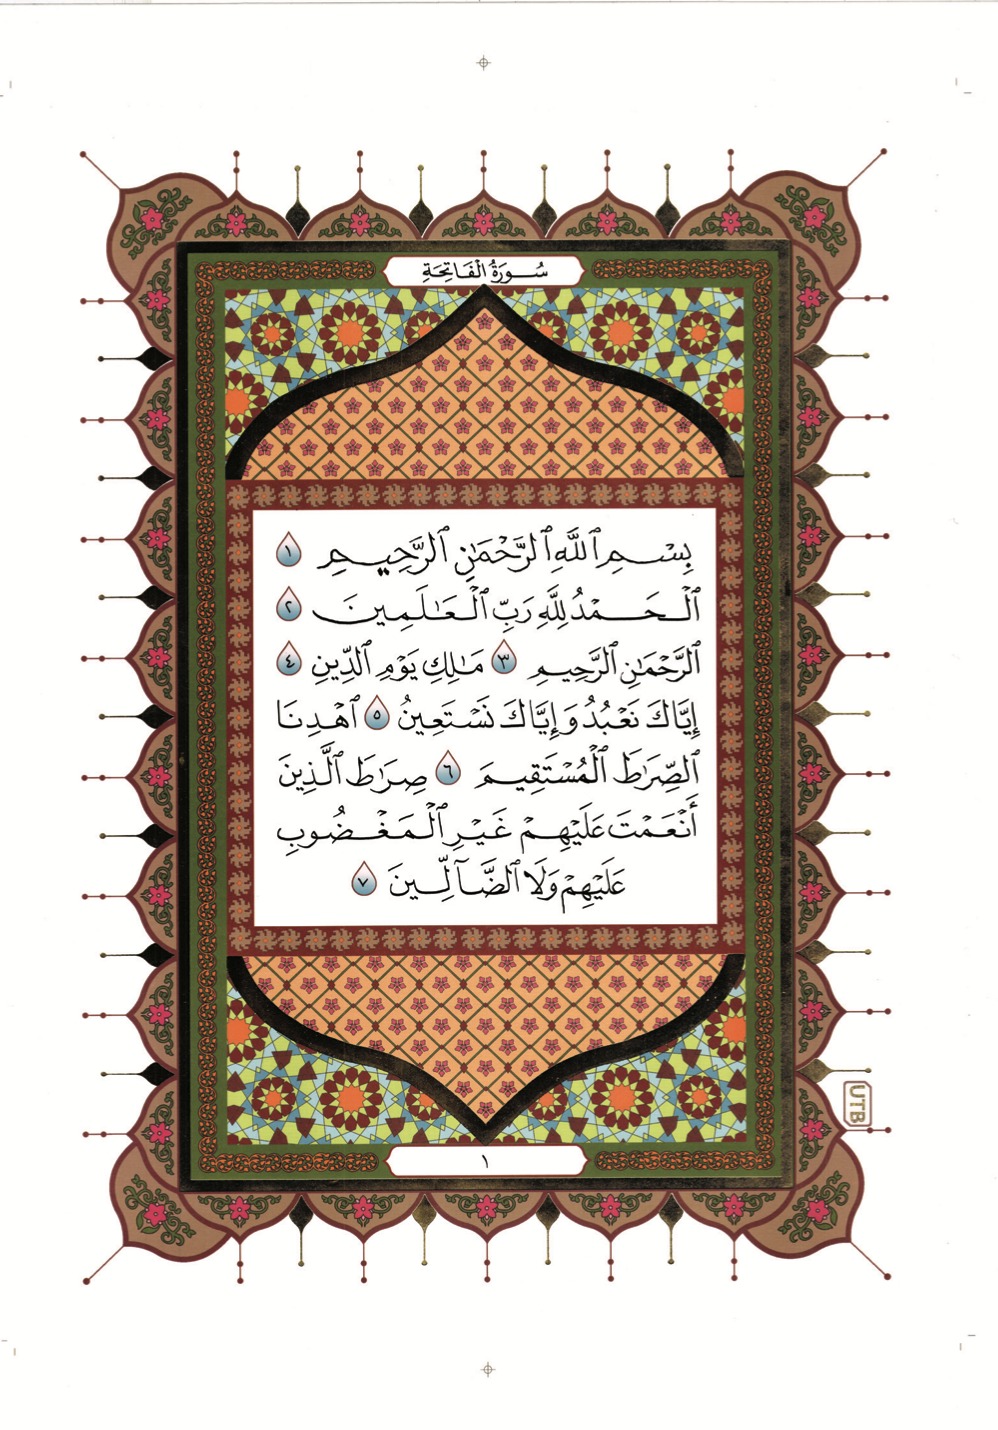 سُورَةُ الْفَاتِحَةِ
بِسْمِ ٱللَّهِ ٱلرَّحْمَٰنِ ٱلرَّحِيمِ ١
ٱلْحَمْدُ لِلَّهِ رَبِّ ٱلْعَٰلَمِينَ ٢
ٱلرَّحْمَٰنِ ٱلرَّحِيمِ ٣ مَٰلِكِ يَوْمِ ٱلدِّينِ ٤
إِيَّاكَ نَعْبُدُ وَإِيَّاكَ نَسْتَعِينُ ٥ ٱهْدِنَا
ٱلصِّرَٰطَ ٱلْمُسْتَقِيمَ ٦ صِرَٰطَ ٱلَّذِينَ
أَنْعَمْتَ عَلَيْهِمْ غَيْرِ ٱلْمَغْضُوبِ
عَلَيْهِمْ وَلَا ٱلضَّآلِّينَ ٧
UTB
١